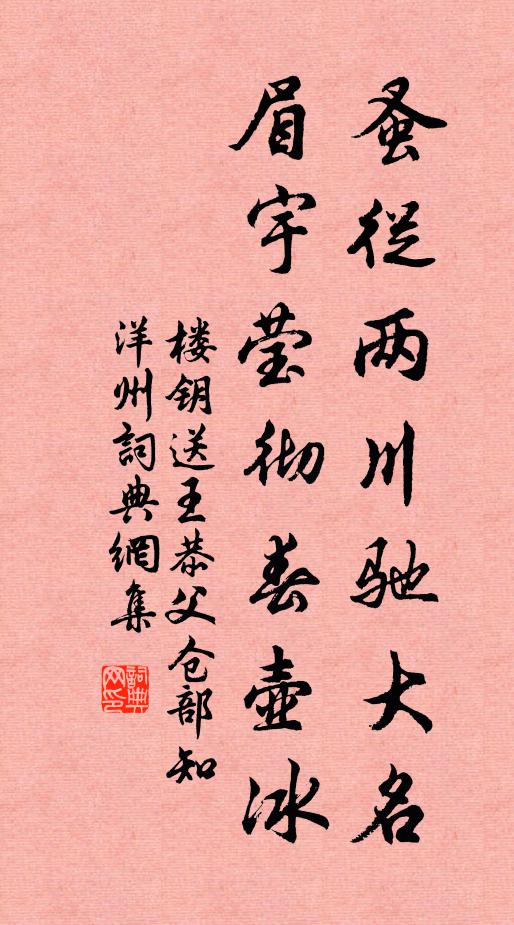 蚤從两川馳大名
眉宇莹彻春壺冰
楼钥送王恭父仓部知
洋州詞典網集
詞典
网印